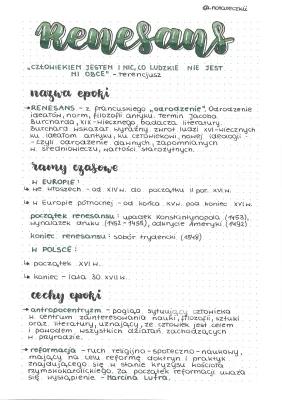 @.notateczkii
Renesans
„CZŁOWIEKIEM JESTEM I NIC, CO LUDZKIE NIE JEST
MI OBCE" - Terencjusz
nazwa epoki
→ RENESANS - z francuskiego „odrodzenie". Odrodzenie
ideałów, norm, filozofii antyku. Termin Jacoba
Burcharda, XIX-wiecznego badacza literatury.
Burchard wskazał wyraźny zwrot ludzi XVI-wiecznych
ku ideałom antyku, ku człowiekowi, nowej ideologii -
- czyli odrodzenie dawnych, zapomnianych
w średniowieczu, wartości starożytnych.
ramy czasowe
W EUROPIE:
↳ we Włoszech - od XIV w. do początku II poł. XVI w.
↳ w Europie północnej - od końca XV w. pod koniec XVI w.
początek renesansu: upadek Konstantynopola (1453),
wynalazek druku (1452-1455), odkrycie Ameryki (1492)
koniec renesansu: sobór trydencki (1545)
W POLSCE:
↳ początek XVI w.
↳ koniec - lata 30. XVII w.
cechy epoki
→ antropocentryzm - pogląd sytuujący człowieka
w centrum zainteresowania nauki, filozofii, sztuki
oraz literatury, uznający, że człowiek jest celem
i powodem wszystkich działań zachodzących
w przyrodzie.
→ reformacja - ruch religijno-społeczno-naukowy,
mający na celu reformę doktryn i praktyk
znajdującego się w stanie kryzysu kościoła
rzymskokatolickiego. Za początek reformacji uważa
się wystąpienie - Marcina Lutra.